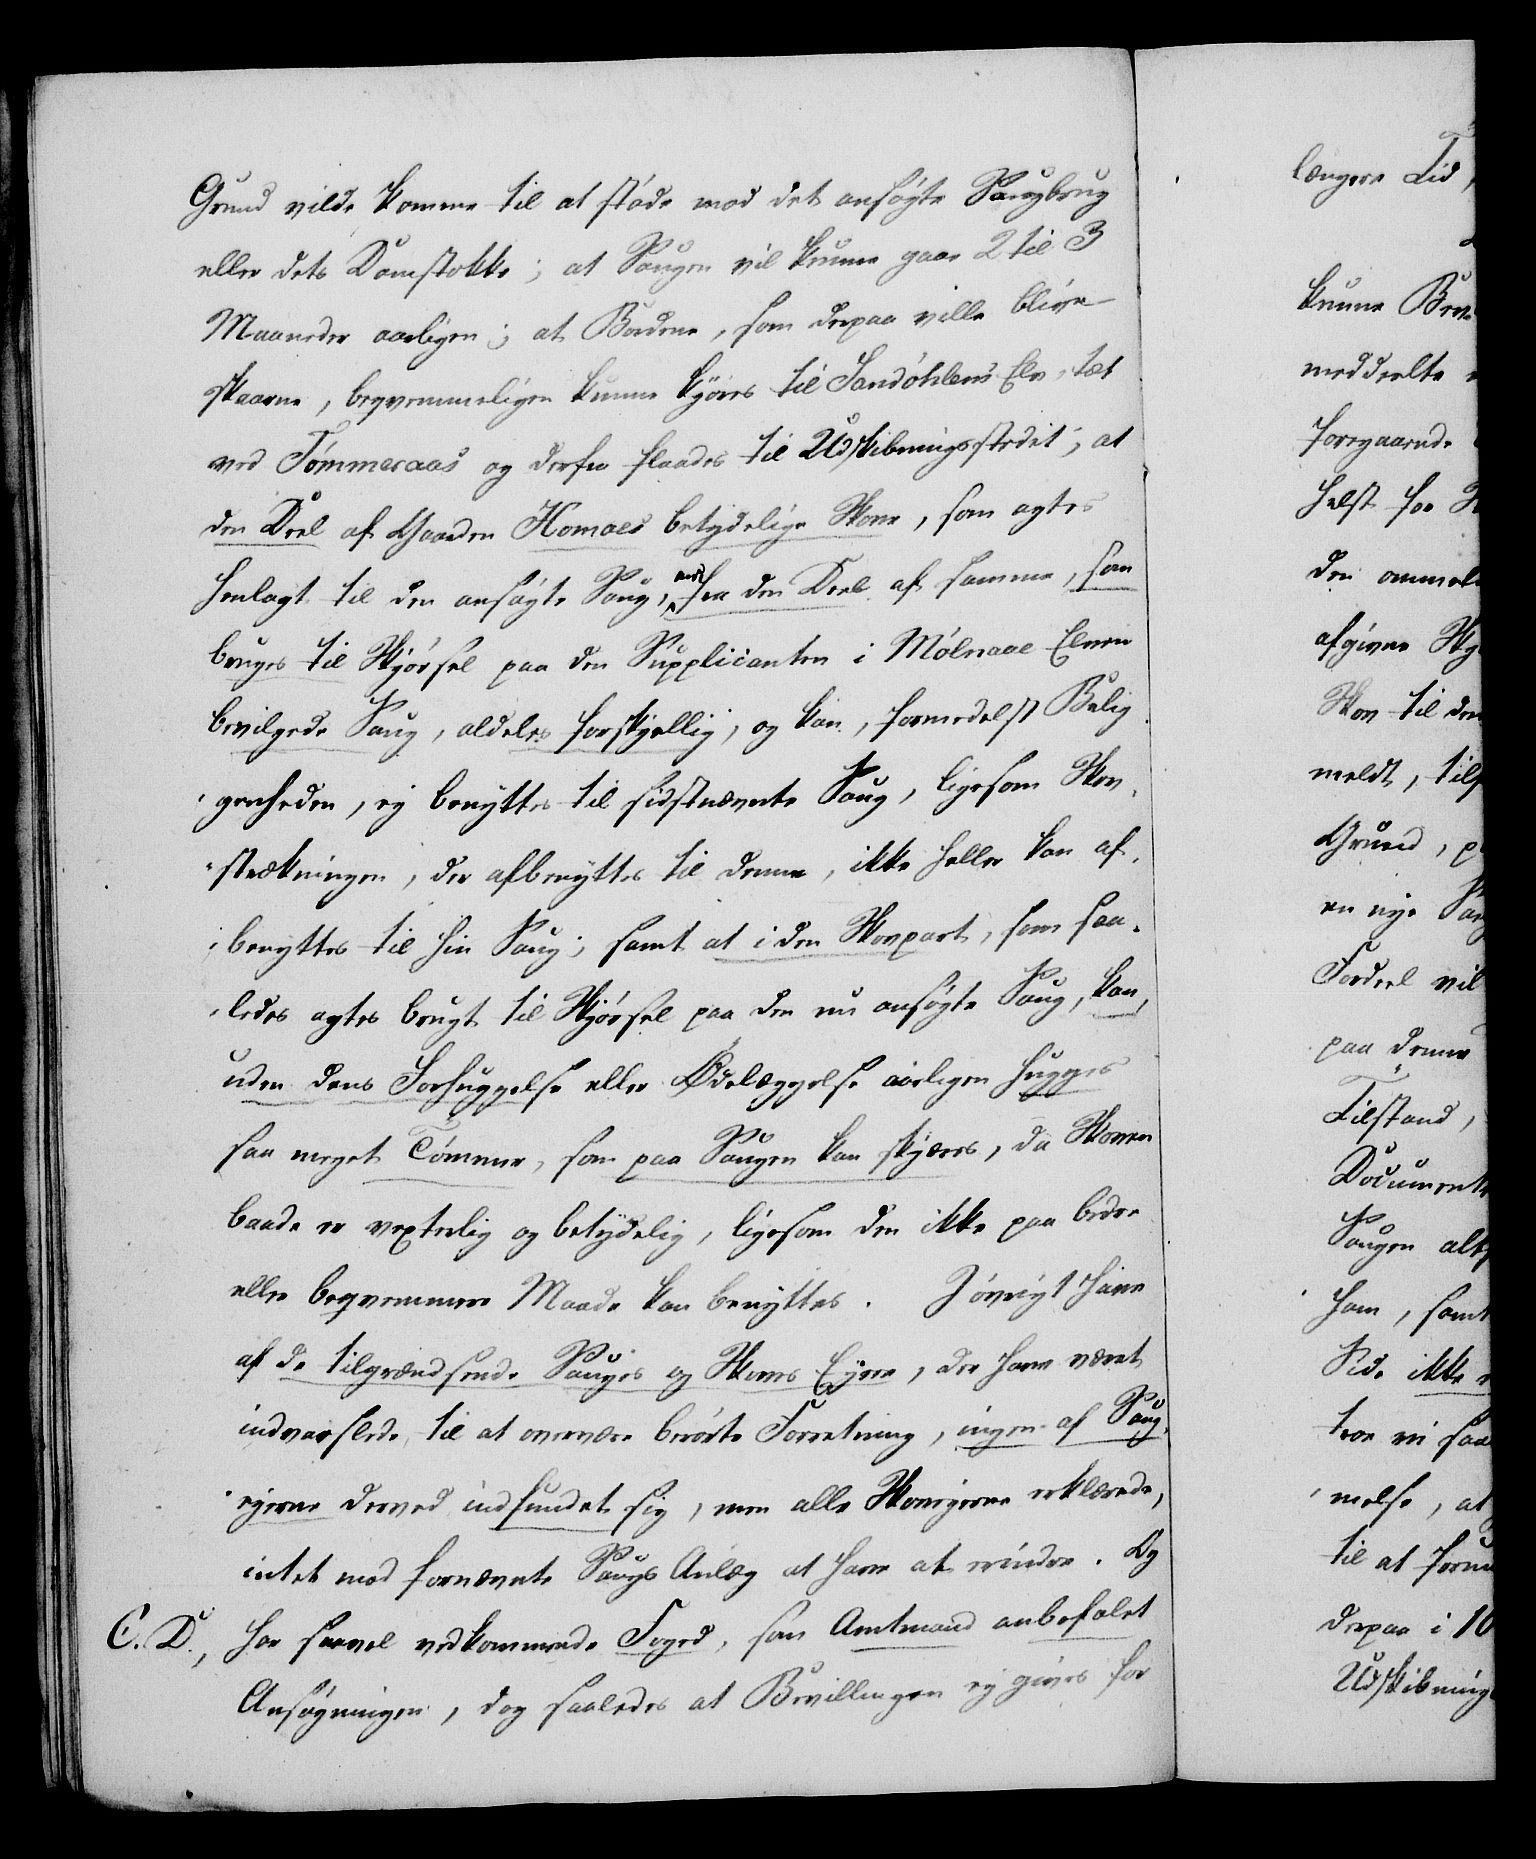 Grund vilde komme til at støde mod det ansøgte Saugbrug
eller dets Damstokke; at Saugen vil kunne gaae 2 til 3
Maaneder aarligen; at Bordene, som derpaa ville blive
skaarne, beqvemmeligen kunne kjøres til Sandøhlens Elv, tæt
ved Tømmeraas og derfra flaades til Udskibningsstedet; at
den Deel af Gaarden Homoes betydelige Skove, som agtes
henlagt til den ansøgte Saug, er fra den Deel af samme, som
bruges til Skjørsel paa den Supplicanten i Mølnaae Elven
bevilgede Saug, aldeles forskjellig, og kan, formedelst Belig-
genheden, ej benyttes til sidstnævnte Saug, ligesom Skov-
strækningen, der afbenyttes til denne, ikke heller kan af-
benyttes til hin Saug; samt at i den Skovpart, som saa-
ledes agtes brugt til Skjørsel paa den nu ansøgte Saug, kan,
uden dens Forhuggelse eller Ødelæggelse aarligen hugges
saa meget Tømmer, som paa Saugen kan skjæres, da Skoven
baade er vexterlig og betydelig, ligesom den ikke paa bedre
eller beqvemmere Maade kan benyttes. Iøvrigt have
af de tilgrændsende Sauges og Skoves Ejere, der have været
indvarslede til at overvære berørte Forretning, ingen af Saug-
ejerne derved indfundet sig, men alle Skovejerne erklærede,
intet mod fornævnte Saugs Anlæg at have at erindre. Og
C. D., har saavel vedkommende Foged, som Amtmand anbefalet
Ansøgningen, dog saaledes at Bevillingen ej gives for
længere Tid,
kunne Bev
meddeelte
foregaaende
helst for
den anmel
afgivne Sk
Skov til den
meldt, til
Grund, p
en nye Sau
Fordeel vil
paa denne
Tilstand,
Document
Saugen alt
ham, samt
Side ikke
troe vi saa
melse, at
til at forun
derpaa i 10
Udskibning